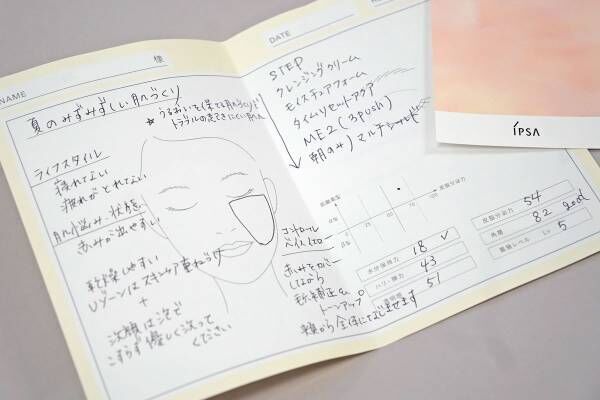 NAME
様
夏のみずみずしい肌づくり
★うるおいを保てる肌づくり
トラブルの起きにくい肌へ
ライフスタイル
疲れがとれてない
肌悩み・状態
赤みが出やすい
乾燥しやすい
Uゾーンはスキンケア重ねづけ
+
洗顔は泡で
こすらず優しく洗って
ください
DATE
STEP
クレンジングクリーム
モイスチュアフォーム
タイムリセットアクア
ME2(3push)
朝のみ)マルチシールド
コントロール
ベイス
赤みをカバー
しながら
毛穴補正&
トーンアップ
頬から全体になじませます
水分保持力 18
ハリ・弾力 43
51
皮脂分泌力 54
角層 82 good
Lv 5
IPSA